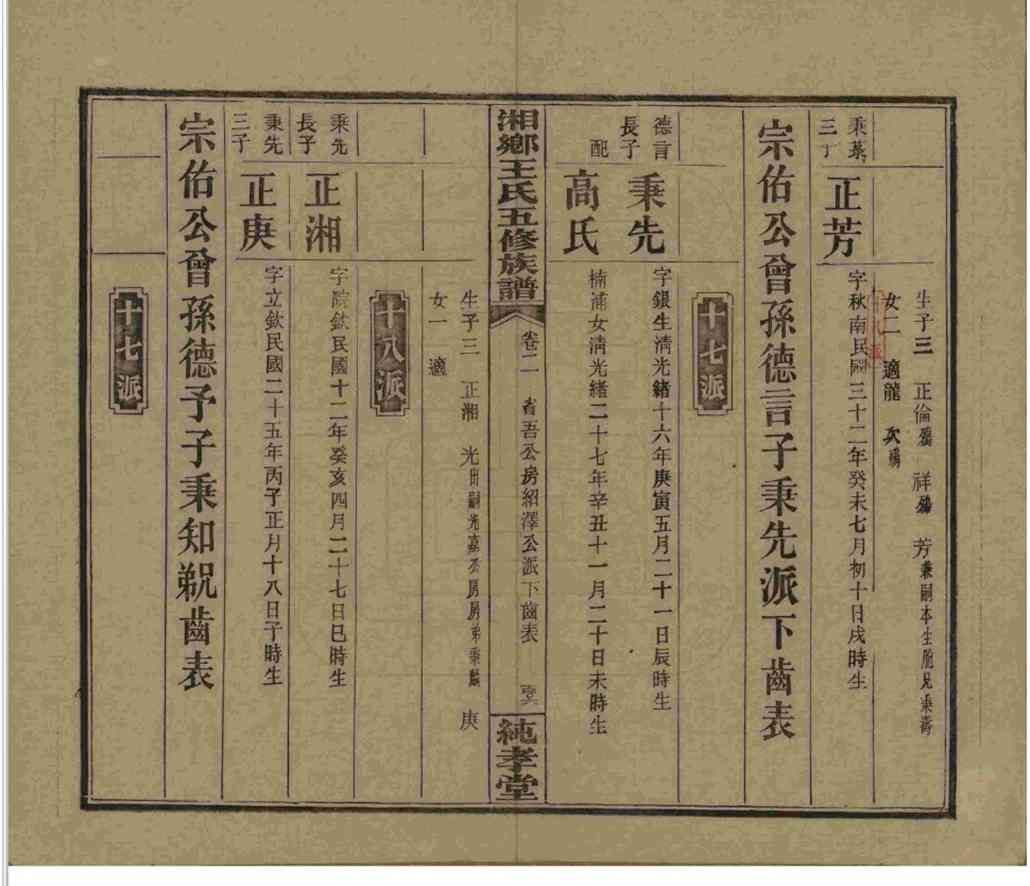 生子三 正倫殤 祥殤 芳兼嗣本生胞兄秉壽
女二 適龍 次殤
秉蓁
三子
正芳
字秋南民國三十二年癸未七月初十日戌時生
宗佑公曾孫德言子秉先派下齒表
十七派
德言
長子
秉先
字銀生清光緒十六年庚寅五月二十一日辰時生
配
高氏
楠浦女清光緒二十七年辛丑十一月二十日未時生
湘鄉王氏五修族譜
卷二
省吾公房紹澤公派下齒表
純孝堂
生子三 正湘 光出嗣光嘉公房房弟秉 庚
女一 適
十八派
秉先
長子
正湘
字院欽民國十二年癸亥四月二十七日巳時生
秉先
三子
正庚
字立欽民國二十五年丙子正月十八日子時生
宗佑公曾孫德予子秉知覡齒表
十七派